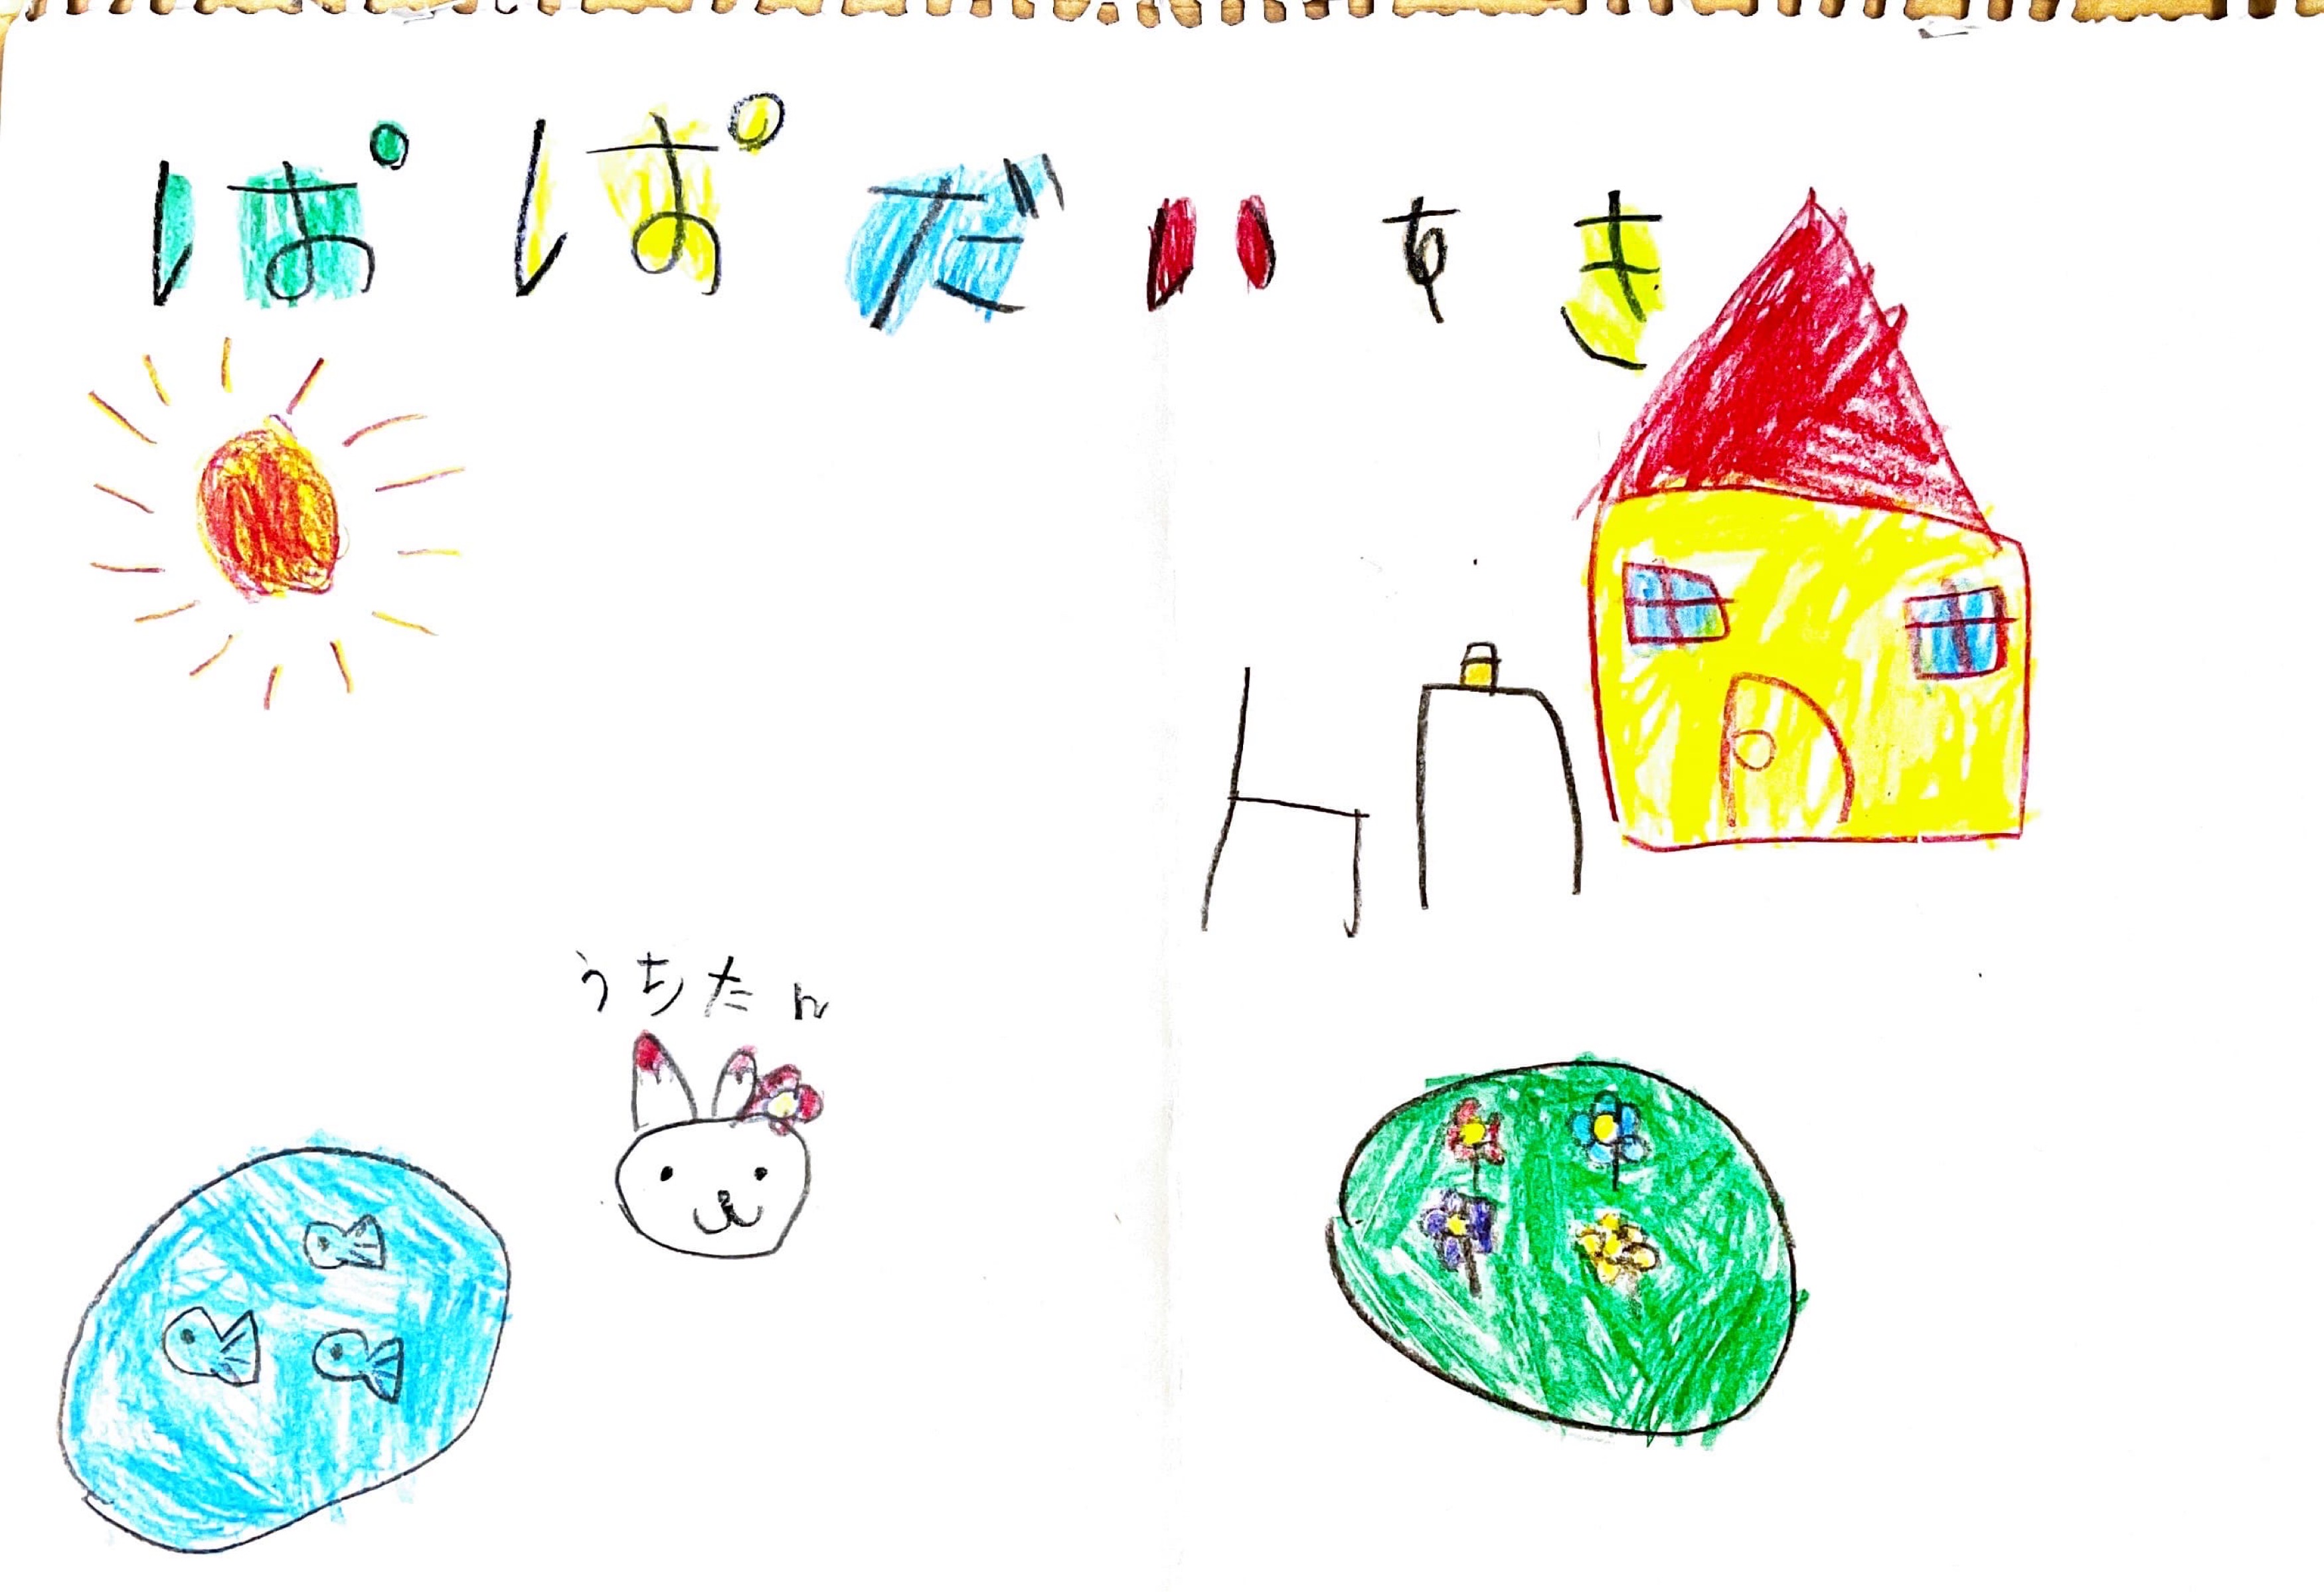 ぱぱだいすき
うちたん